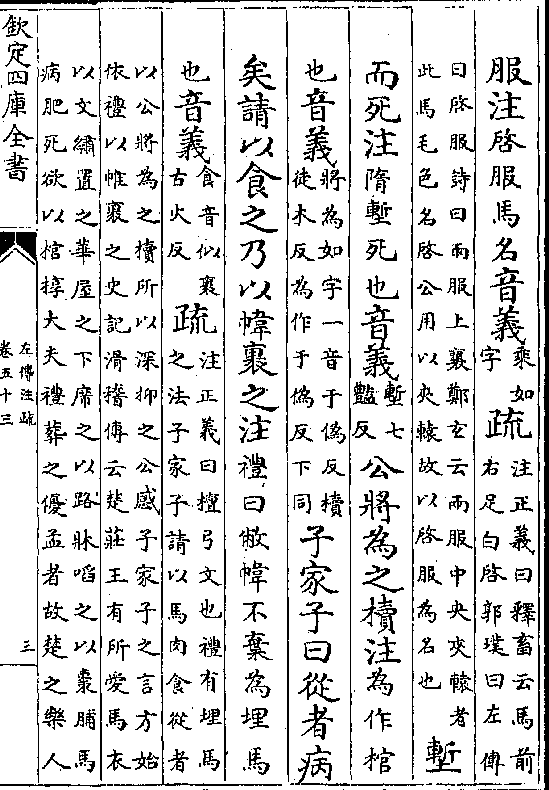 服注啓服馬名音義乘如字疏注正義曰釋畜云馬前右足白啓郭璞曰左傳
曰啓服詩曰兩服上襄鄭玄云兩服中央夾轅者此馬毛色名啓公用以夾轅故以啓服為名也塹
而死注隋塹死也音義塹七豔反公將為之櫝注為作棺
也音義將為如字一音于偽反櫝徒木反為作于偽反下同子家子曰從者病
矣請以食之乃以幃裹之注禮曰敝幃不棄為埋馬
也音義食音似裹古火反疏注正義曰檀弓文也禮有埋馬之法子家子請以馬肉食從者
以公將為之櫝所以深抑之公感子家子之言方始依禮以帷裹之史記滑稽傳云楚莊王有所愛馬衣
以文繡置之華屋之下席之以路牀啗之以棗脯馬病肥死欲以棺椁大夫禮葬之優孟者故楚之樂人
欽定四庫全書
左傳注疏
卷五十三
三